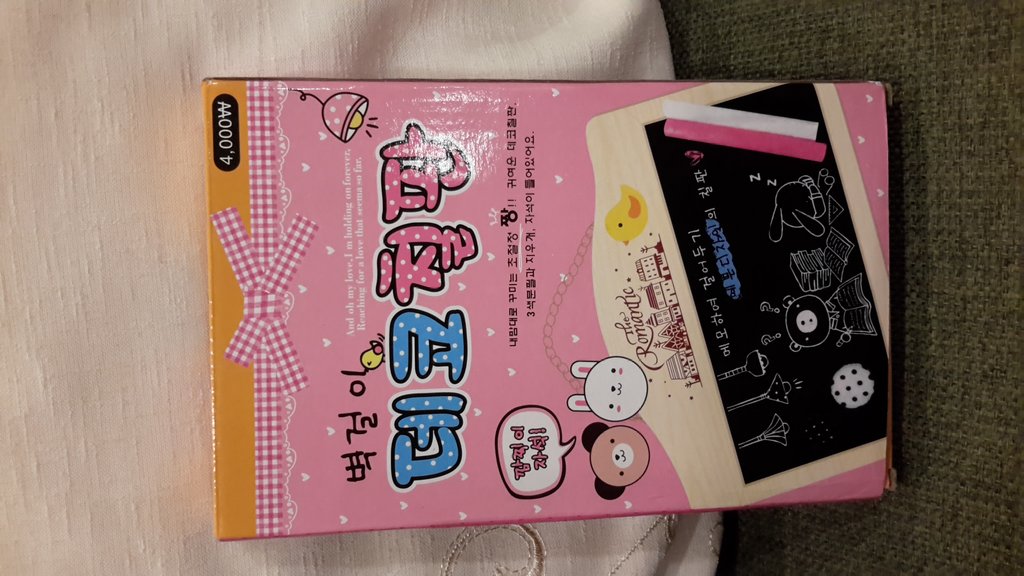 4,000₩
And oh my love, I m holding on forever,
Reaching for a love that seems so far,
벽걸이
데코칠판
내맘대로 꾸미는 초절정 짱!! 귀여운 데코칠판.
3색분필과 지우개, 자석이 들어있어요.
깜찍이
자석!
The
Romantic
메모하여 걸어두기
예쁜디자인의 칠판
z z
z
? ? ?